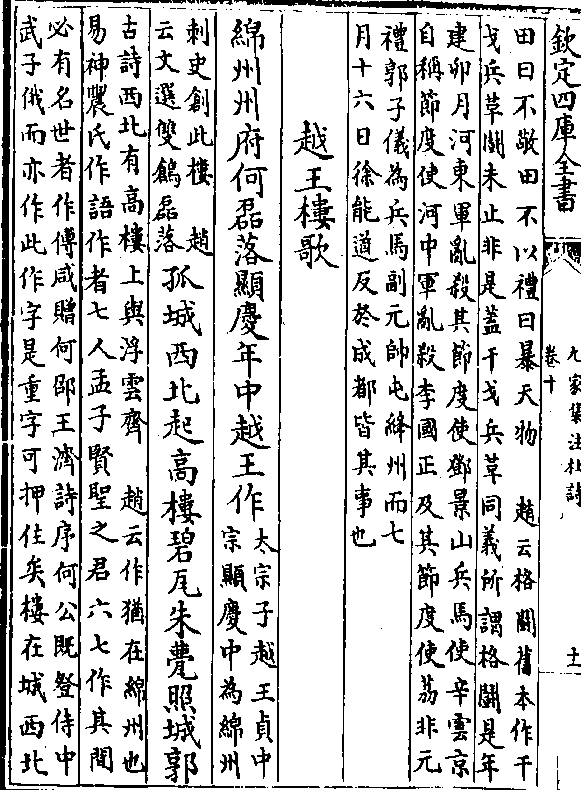 欽定四庫全書
九家集注杜詩
卷十
十一
田曰不敬田不以禮曰暴天物　趙云格鬬舊本作干
戈兵革鬬未止非是蓋干戈兵革同義所謂格鬬是年
建卯月河東軍亂殺其節度使鄧景山兵馬使辛雲京
自稱節度使河中軍亂殺李國正及其節度使荔非元
禮郭子儀為兵馬副元帥屯絳州而七
月十六日徐能道反於成都皆其事也
越王樓歌
綿州州府何磊落顯慶年中越王作
太宗子越王貞中
宗顯慶中為綿州
刺史創此樓　趙
云文選雙鶴磊落
孤城西北起高樓碧瓦朱甍照城郭
古詩西北有高樓上與浮雲齊　趙云作猶在綿州也
易神農氏作語作者七人孟子賢聖之君六七作其間
必有名世者作傅咸贈何邵王濟詩序何公既登侍中
武子俄而亦作此作字是重字可押住矣樓在城西北